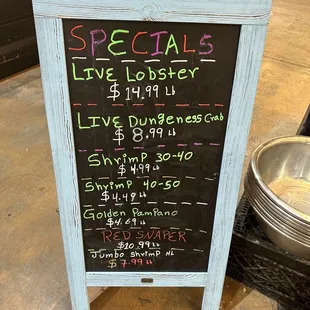 SPECIALS
Live Lobster
$14.99 Lb
Live Dungeness Crab
$8.99 Lb
Shrimp 30-40
$4.99 Lb
Shrimp 40-50
$4.49 Lb
Golden Pampano
$4.69 Lb
RED SNAPER
$10.99 Lb
Jumbo Shrimp HL
$7.99 Lb